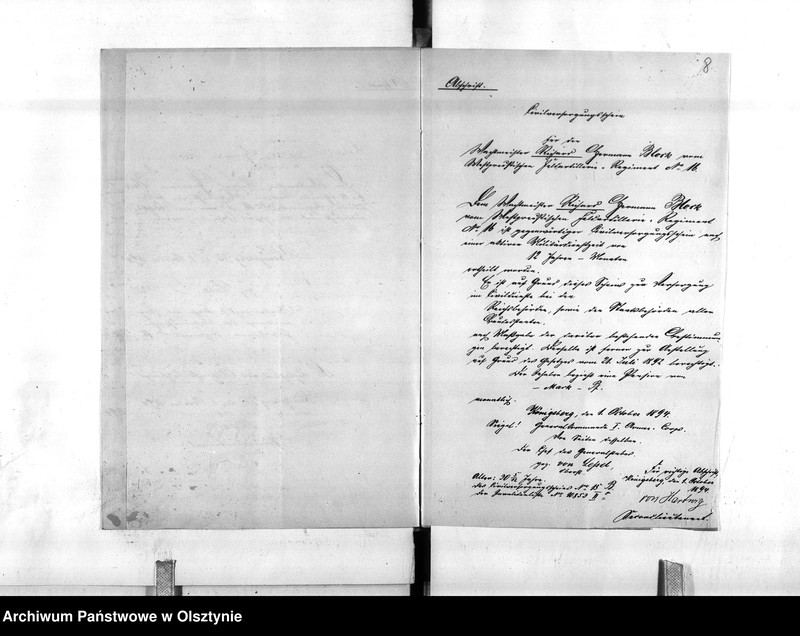 8
Abschrift.
Civilversorgungsschein
für den
Wachtmeister Richard Hermann Block vom
Westpreußischen Feldartillerie-Regiment No 16.
Dem Wachtmeister Richard Hermann Block
vom Westpreußischen Feldartillerie-Regiment
No 16 ist gegenwärtiger Civilversorgungsschein nach
einer aktiven Militärdienstzeit von
12 Jahren – Monaten
ertheilt worden.
Er ist auf Grund dieses Scheins zur Versorgung
im Civildienste bei den
Reichsbehörden, sowie den Staatsbehörden aller
Bundesstaaten
nach Maßgabe der darüber bestehenden Bestimmun
gen berechtigt. Derselbe ist ferner zur Anstellung
auf Grund des Gesetzes vom 21. Juli 1892 berechtigt.
Der Inhaber bezieht eine Pension von
Mark – Pf.
monatlich.
Königsberg, den 1. Oktober 1894.
Siegel! Generalkommando I. Armee-Corps.
Von Seiten desselben.
Der Chef des Generalstabes.
gez. von
Oberst
Alter: 30 Jahre.
des Civilversorgungsscheins No 15
der Invalidenliste No 10853 II
Für richtige Abschrift
Königsberg, den 1. Oktober
1894.
Archiwum Państwowe w Olsztynie